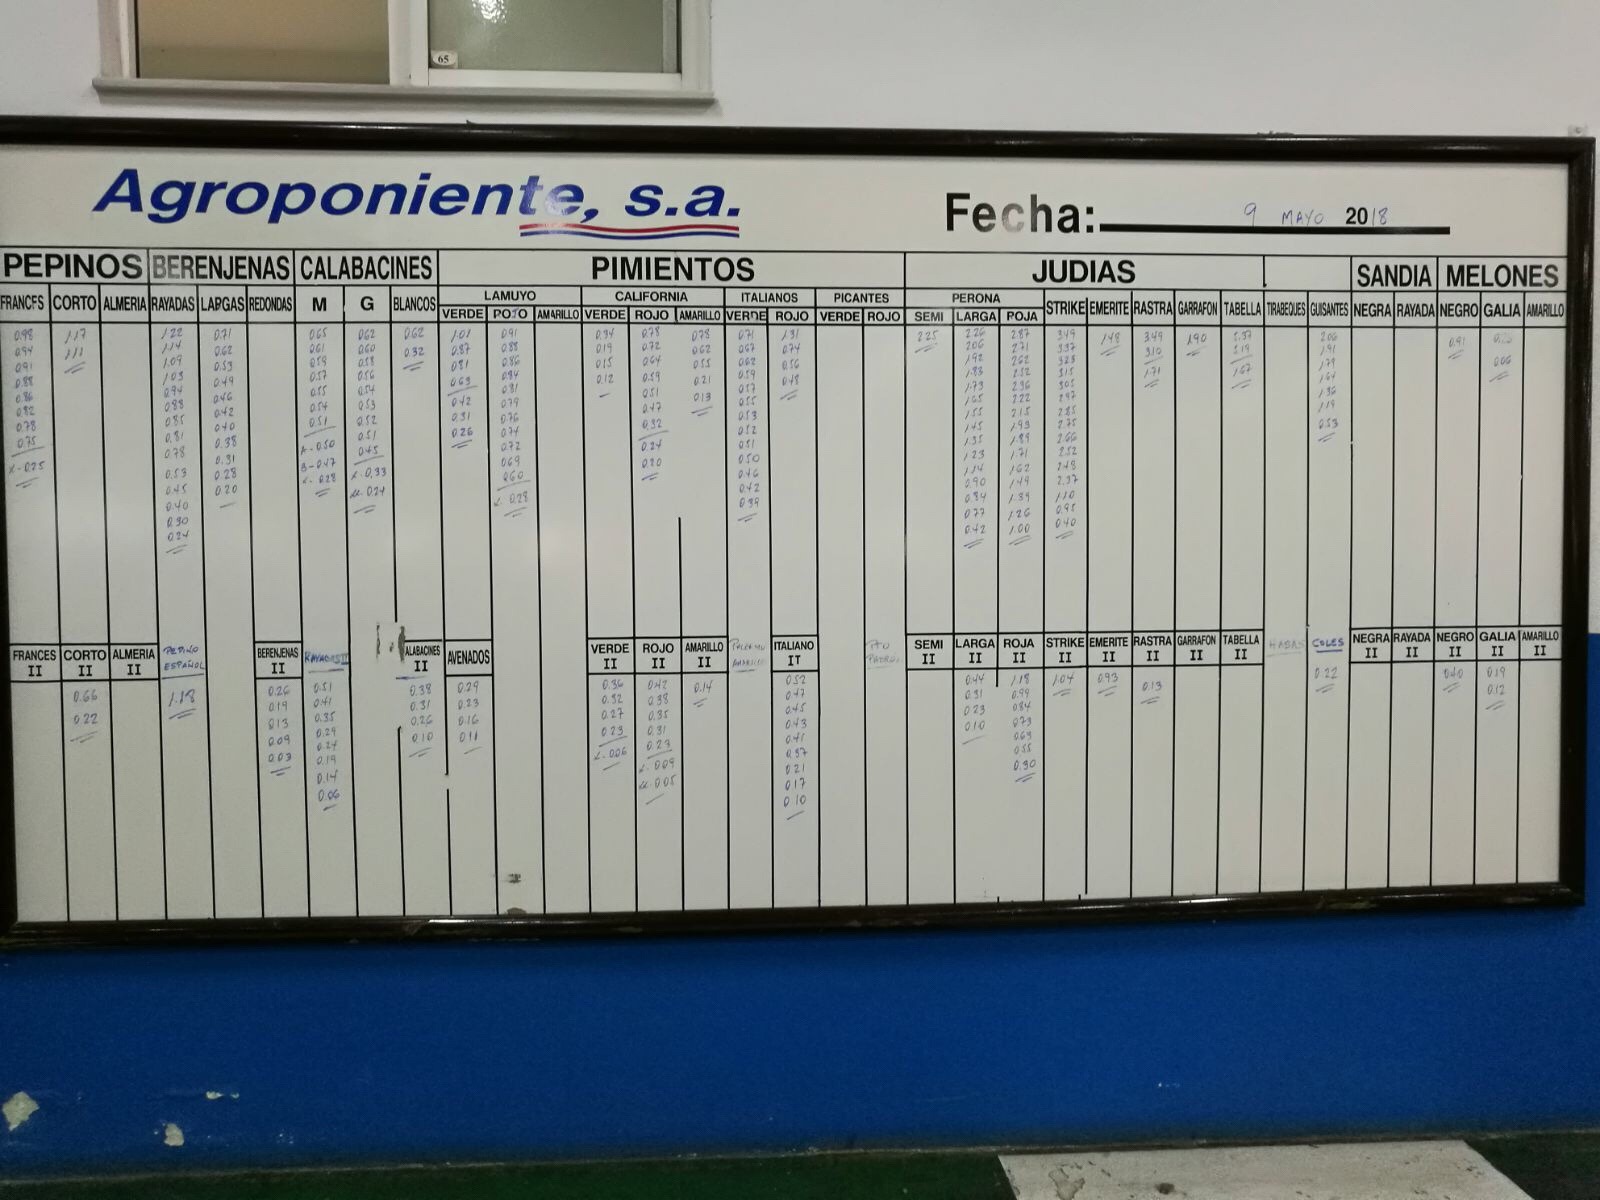 65
Agroponiente, s.a.
Fecha: 9 MAYO 2018
PEPINOS BERENJENAS CALABACINES PIMIENTOS JUDIAS SANDIA MELONES
LAMUYO CALIFORNIA ITALIANOS PICANTES PERONA
FRANCES CORTO ALMERIA RAYADAS LARGAS REDONDAS M G BLANCOS VERDE ROJO AMARILLO VERDE ROJO AMARILLO VERDE ROJO VERDE ROJO SEMI LARGA ROJA STRIKE EMERITE RASTRA GARRAFON TABELLA TIRABEQUES GUISANTES NEGRA RAYADA NEGRO GALIA AMARILLO
0.98 1.17 1.22 0.71 0.65 0.62 0.62 1.01 0.91 0.34 0.78 0.78 0.71 1.31 2.25 2.26 2.87 3.49 1.48 3.49 1.90 5.37 2.06 0.91
0.94 1.11 1.14 0.62 0.61 0.60 0.32 0.87 0.88 0.19 0.72 0.62 0.67 0.74 2.06 2.71 3.37 3.10 5.19 1.91
0.91 1.09 0.53 0.59 0.58 0.81 0.86 0.15 0.64 0.55 0.62 0.56 1.92 2.62 3.23 1.71 1.67 1.78 0.06
0.88 1.03 0.49 0.57 0.56 0.63 0.84 0.12 0.59 0.21 0.59 0.48 1.83 2.52 3.15 1.64
0.86 0.94 0.46 0.55 0.54 0.42 0.81 0.51 0.13 0.57 1.73 2.36 3.05 1.36
0.82 0.88 0.42 0.54 0.53 0.31 0.79 0.47 0.55 1.65 2.22 2.97 1.19
0.78 0.85 0.40 0.51 0.52 0.26 0.76 0.32 0.53 1.55 2.15 2.85 0.53
0.75 0.81 0.38 A-0.50 0.51 0.74 0.24 0.52 1.45 1.93 2.75
x-0.25 0.78 0.31 B-0.47 0.45 0.72 0.20 0.51 1.35 1.89 2.66
0.53 0.28 x-0.28 x-0.33 0.69 0.50 1.23 1.71 2.52
0.45 0.20 xx-0.24 0.60 0.46 1.14 1.62 2.48
0.40 x-0.28 0.42 0.90 1.49 2.37
0.30 0.39 0.84 1.39 1.10
0.24 0.77 1.26 0.95
0.42 1.00 0.40
FRANCES II CORTO II ALMERIA II PEPINO ESPAÑOL BERENJENAS II RAYADAS II ALABACINES II AVENADOS VERDE II ROJO II AMARILLO II ITALIANO II SEMI II LARGA II ROJA II STRIKE II EMERITE II RASTRA II GARRAFON II TABELLA II HABAS COLES NEGRA II RAYADA II NEGRO II GALIA II AMARILLO II
0.66 1.18 0.26 0.51 0.38 0.29 0.36 0.42 0.14 0.52 0.44 1.18 1.04 0.93 0.13 0.22 0.40 0.19
0.22 0.19 0.41 0.31 0.23 0.32 0.38 0.47 0.31 0.99 0.12
0.13 0.35 0.26 0.16 0.27 0.35 0.45 0.23 0.84
0.09 0.29 0.10 0.11 0.23 0.31 0.43 0.10 0.73
0.03 0.24 x-0.06 0.23 0.41 0.63
0.19 x-0.09 0.37 0.55
0.14 xx-0.05 0.21 0.30
0.06 0.17
0.10